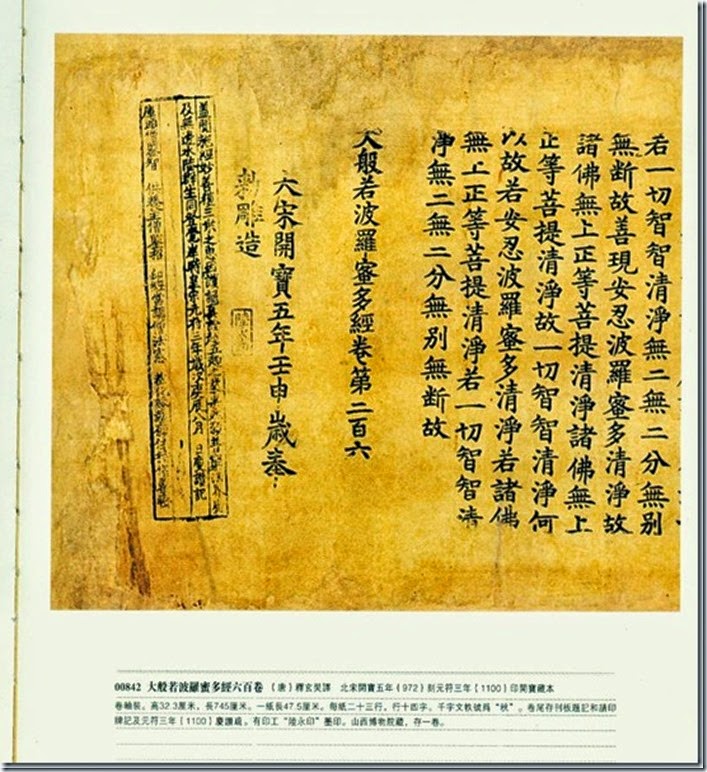 若一切智智清淨無二無二分無别
無斷故善現安忍波羅蜜多清淨故
諸佛無上正等菩提清淨諸佛無上
正等菩提清淨故一切智智清淨何
以故若安忍波羅蜜多清淨若諸佛
無上正等菩提清淨若一切智智清
淨無二無二分無别無斷故
大般若波羅蜜多經卷第二百六
大宋開寶五年壬申歲奉
勑雕造
盖聞施經妙善獲三乘之惠
及無邊水陸群生同登覺岸時皇宋元符三年歲次庚辰八月 日慶讚記
00842 大般若波羅蜜多經六百卷 （唐）釋玄奘譯 北宋開寶五年（972）刻元符三年（1100）印開寶藏本
卷軸裝。高32.3厘米，長745厘米。一紙長47.5厘米。每紙二十三行，行十四字。千字文帙號爲“秋”。卷尾存刊板題記和請印
牌記及元符三年（1100）慶讚疏。有印工“陸永印”墨印。山西博物院藏，存一卷。